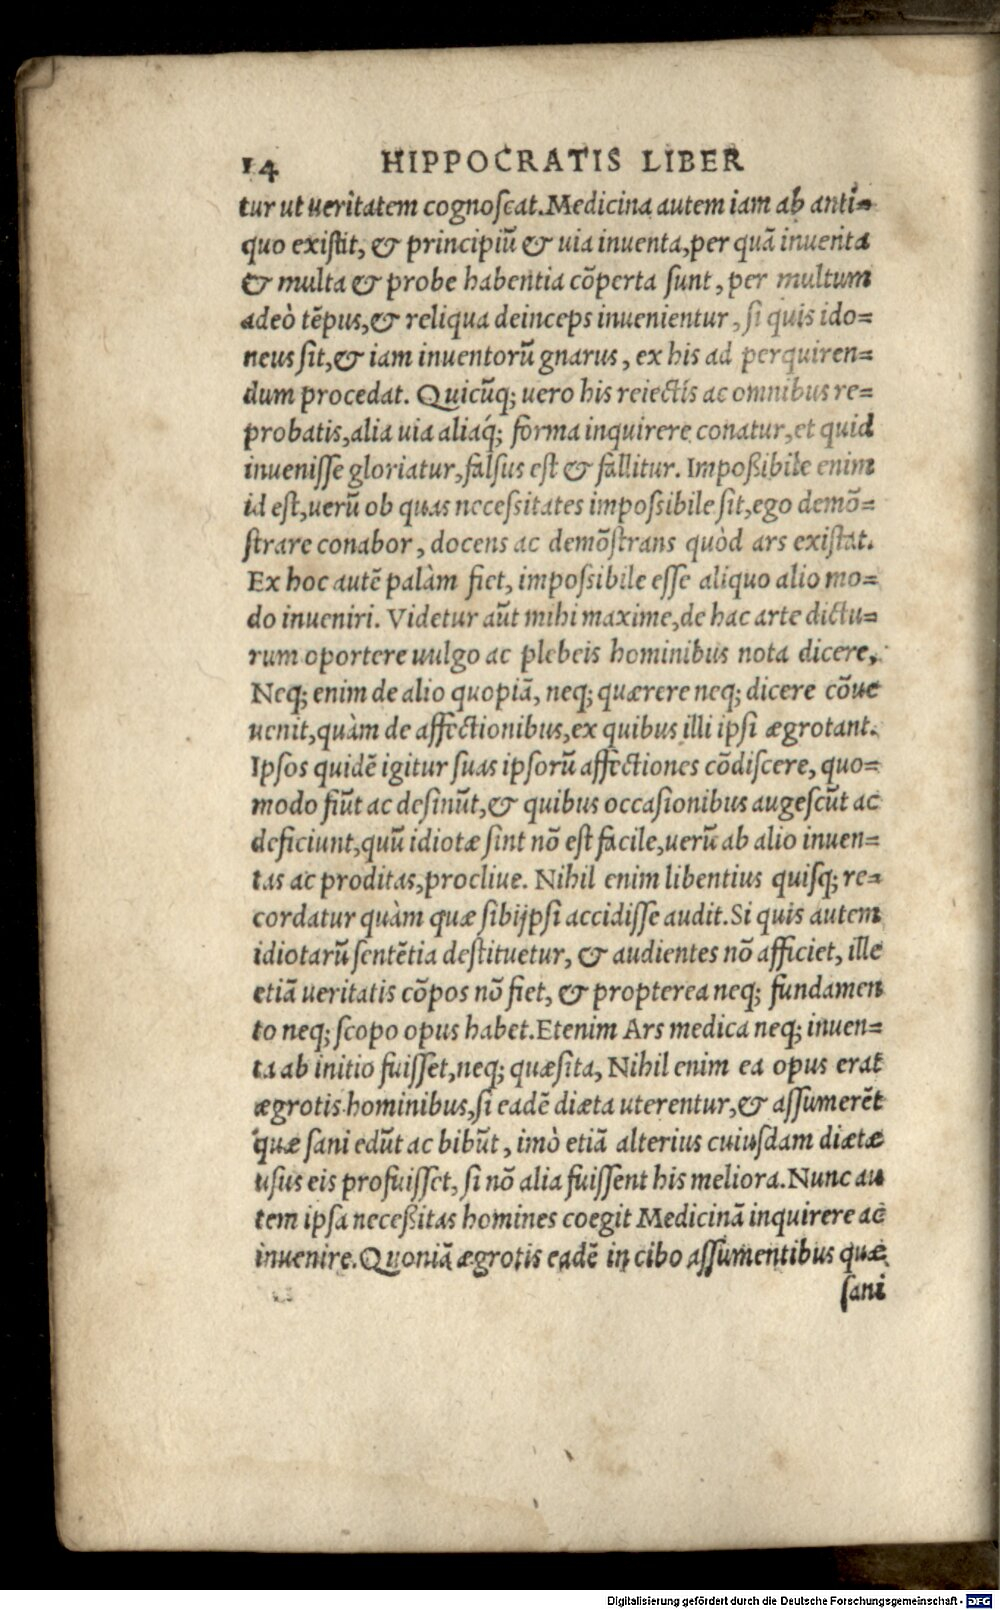 14 HIPPOCRATIS LIBER
tur ut ueritatem cognoscat. Medicina autem iam ab anti=
quo existit, & principiũ & uia inuenta, per quã inuenta
& multa & probe habentia cõperta sunt, per multum
adeò tẽpus, & reliqua deinceps inuenientur, si quis ido=
neus sit, & iam inuentorũ gnarus, ex his ad perquiren=
dum procedat. Quicũq; uero his reiectis ac omnibus re=
probatis, alia uia aliáq; forma inquirere conatur, et quid
inuenisse gloriatur, falsus est & fallitur. Impoßibile enim
id est, uerũ ob quas necessitates impossibile sit, ego demõ=
strare conabor, docens ac demõstrans quòd ars existat.
Ex hoc autẽ palàm fiet, impossibile esse aliquo alio mo=
do inueniri. Videtur aũt mihi maxime, de hac arte dictu=
rum oportere uulgo ac plebeis hominibus nota dicere,
Neq; enim de alio quopiã, neq; quærere neq; dicere cõue
uenit, quàm de affectionibus, ex quibus illi ipsi ægrotant.
Ipsos quidẽ igitur suas ipsorũ affectiones cõdiscere, quo=
modo fiũt ac desinũt, & quibus occasionibus augescũt ac
deficiunt, quũ idiotæ sint nõ est facile, uerũ ab alio inuen=
tas ac proditas, procliue. Nihil enim libentius quisq; re=
cordatur quàm quæ sibijpsi accidisse audit. Si quis autem
idiotarũ sentẽtia destituetur, & audientes nõ afficiet, ille
etiã ueritatis cõpos nõ fiet, & propterea neq; fundamen
to neq; scopo opus habet. Etenim Ars medica neq; inuen=
ta ab initio fuisset, neq; quæsita, Nihil enim ea opus erat
ægrotis hominibus, si eadẽ diæta uterentur, & assumerẽt
quæ sani edũt ac bibũt, imò etiã alterius cuiusdam diætæ
usus eis profuisset, si nõ alia fuissent his meliora. Nunc au
tem ipsa neceßitas homines coegit Medicinã inquirere ac
inuenire. Quoniã ægrotis eadẽ in cibo assumentibus quæ
sani
Digitalisierung gefördert durch die Deutsche Forschungsgemeinschaft - DFG